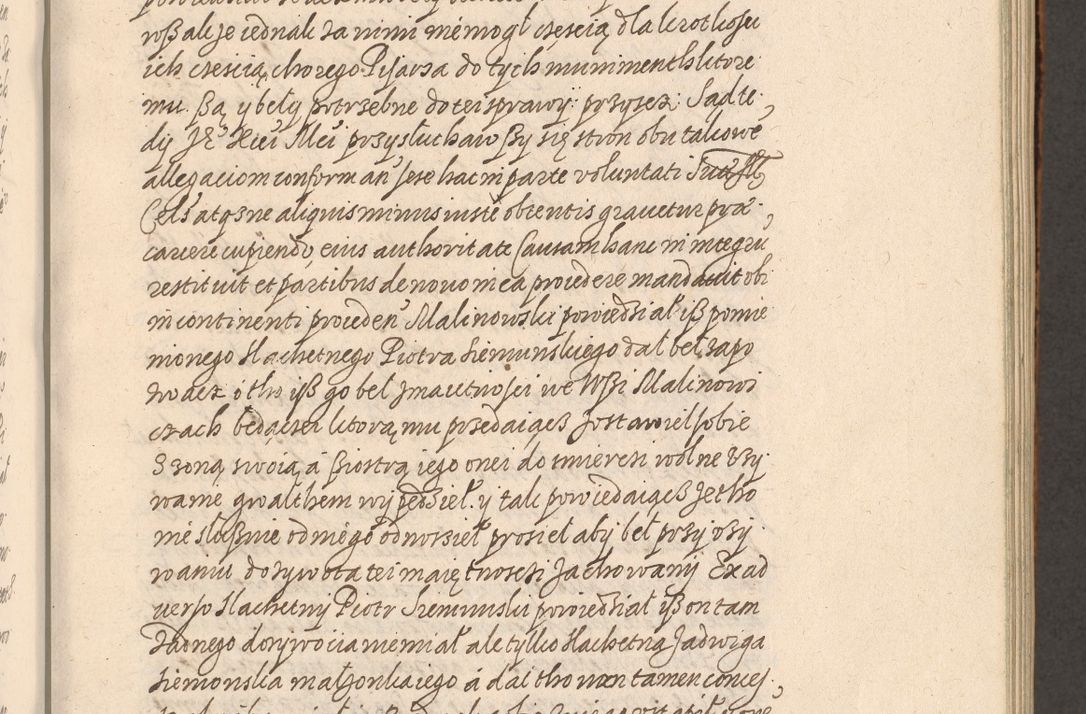 roß ale ze iednak za nimi niemogł czescią dla krotkosci
ich czescią chorego Pisarza do tych munimenth ktore
mu ßą y beły potrzebne do tei sprawy przysedz Sąd te
dy JE Xiei Mci przysłuchawßy się stron obu takowe
allegaciom conforman sese hac in parte voluntati
Cels atq3 ne aliquis minus iuste obtentis grauetur prae
cauere cupiendo eius authoritate Causam hanc in integru
restituit et partibus de nouo in ea procedere mandauit obi
in continenti proceden Malinowski powiedział iß pomie
nionego slachetnego Piotra Siemunskiego dał beł zapo
zwacz o tho iß go beł z maietnosci we Wßi Malinowi
czach będączei ktorą mu przedaiącz zostawieł sobie
z żoną swoią á siostrą iego onei do smierczi wolne uzy
wanie gwałthem wypędzieł y tak powiedaiącz ze tho
nie słußnie od niego odnoszieł prosieł aby beł przy uzy
waniu dozywota tei maiętnosczi zachowany Ex ad
uerso slachetny Piotr Siemunski powiedział iß on tam
żadnego dozywocia nie miał ale tylko slachetna Jadwiga
Siemonska małzonka iego á dai tho non tamen conces